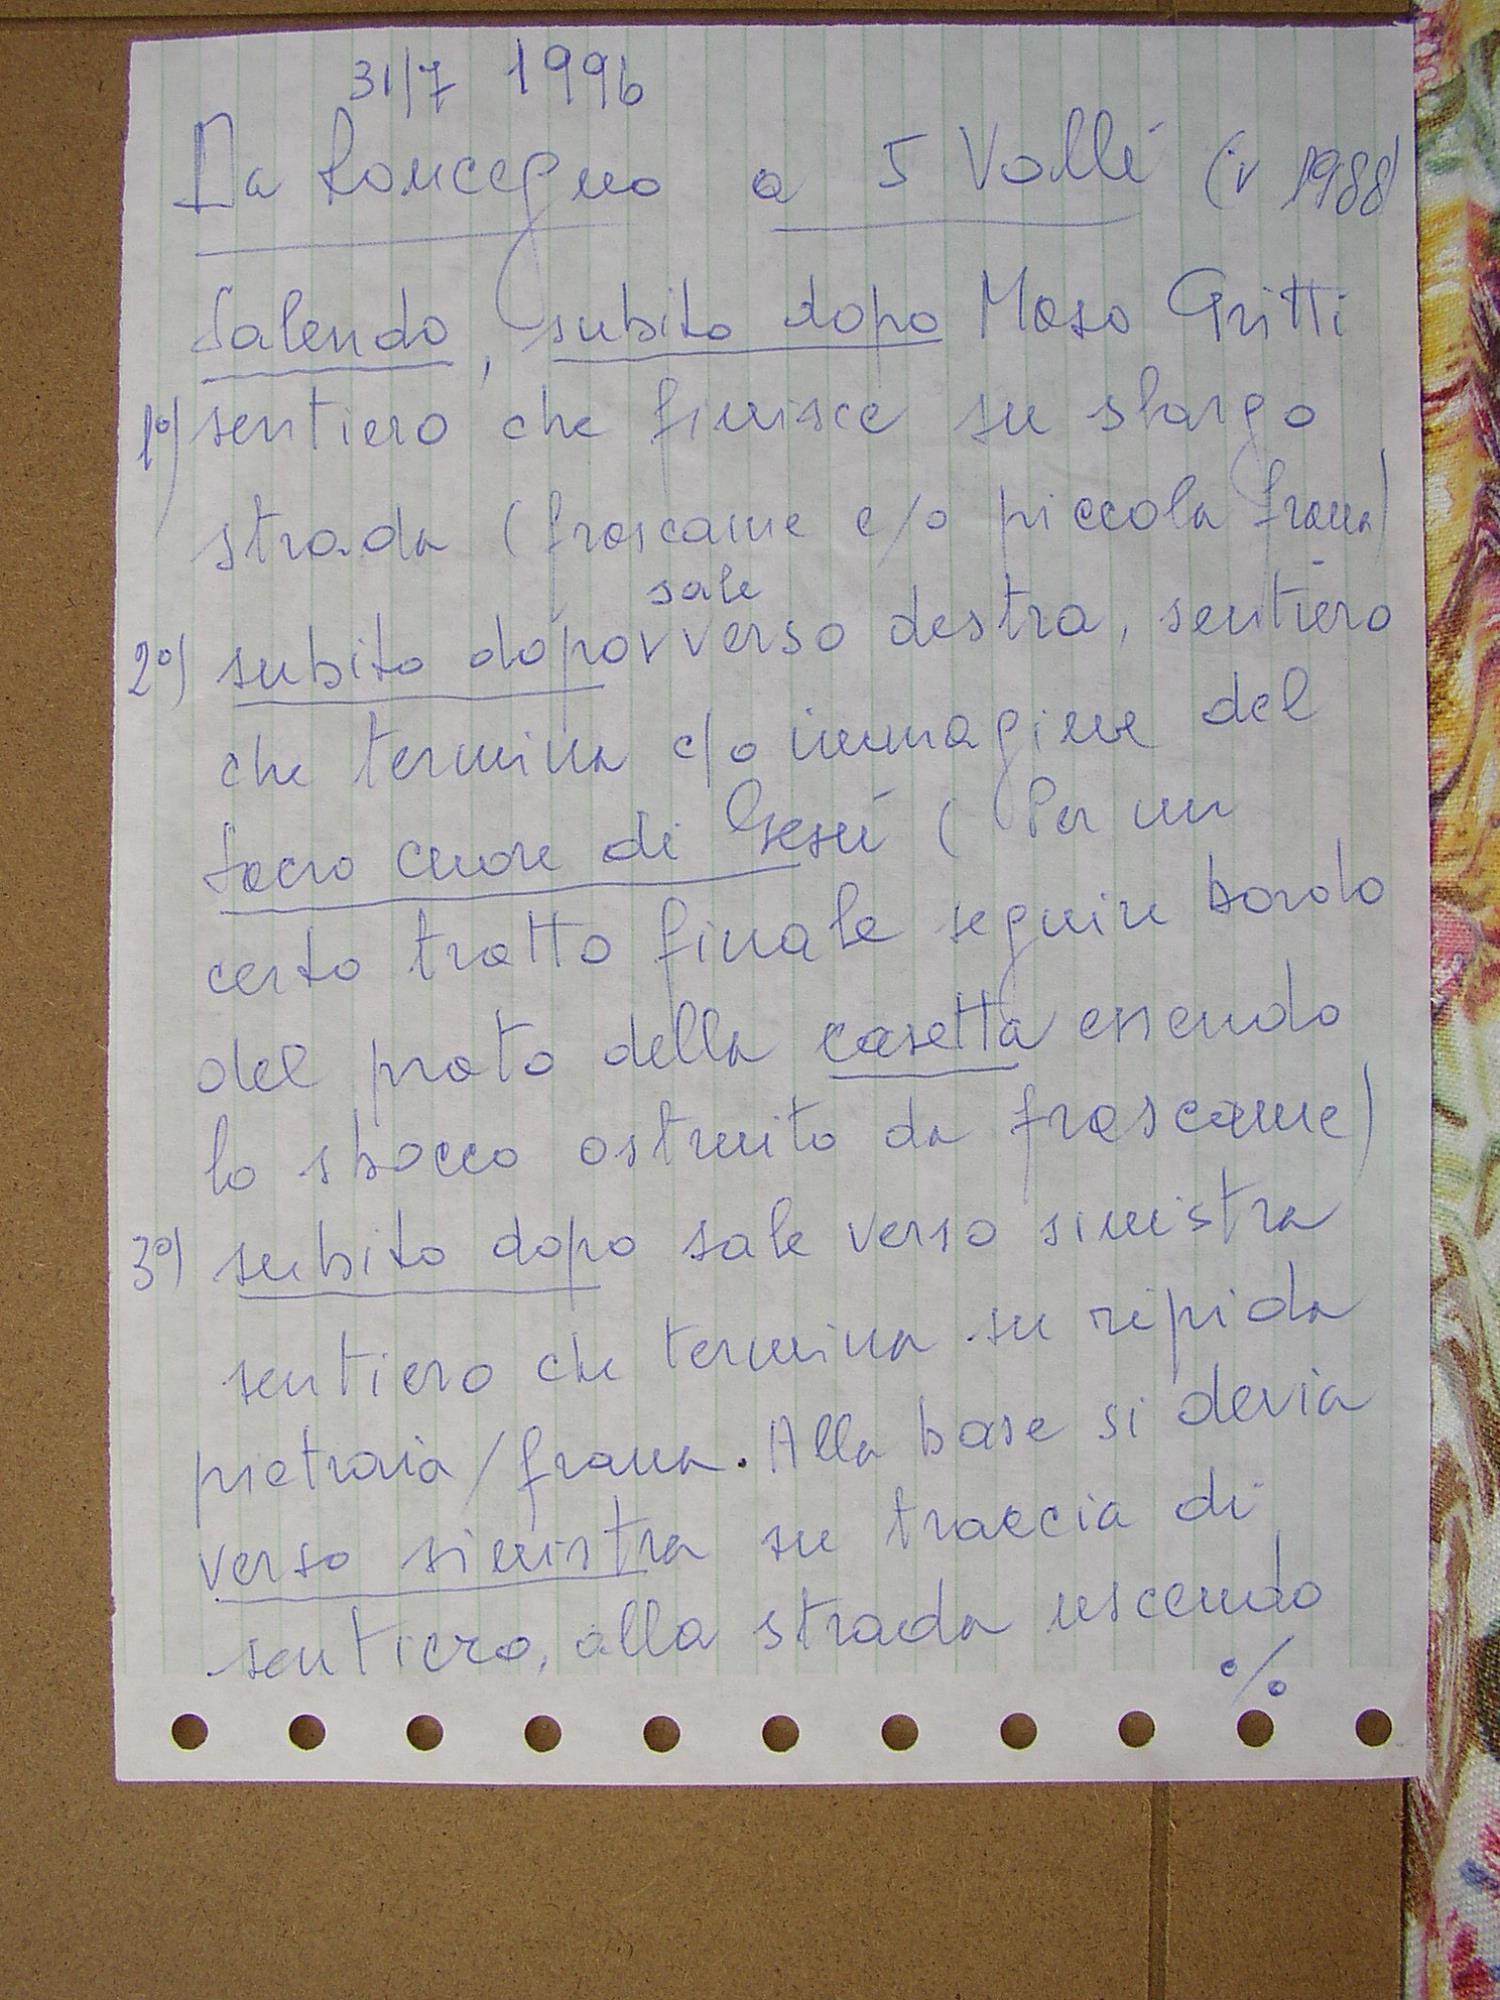 31/7 1996
Da Roncegno a 5 Valli (v 1988)
Salendo, subito dopo Maso Gritti
1°) sentiero che finisce su slargo
strada (frascame c/o piccola frana)
sale
2°) subito dopo verso destra, sentiero
che termina c/o immagine del
Sacro cuore di Gesù (Per un
certo tratto finale seguire bordo
del prato della casetta essendo
lo sbocco ostruito da frascame)
3°) subito dopo sale verso sinistra
sentiero che termina su ripida
pietraia/frana. Alla base si devia
verso sinistra su traccia di
sentiero, alla strada uscendo
%